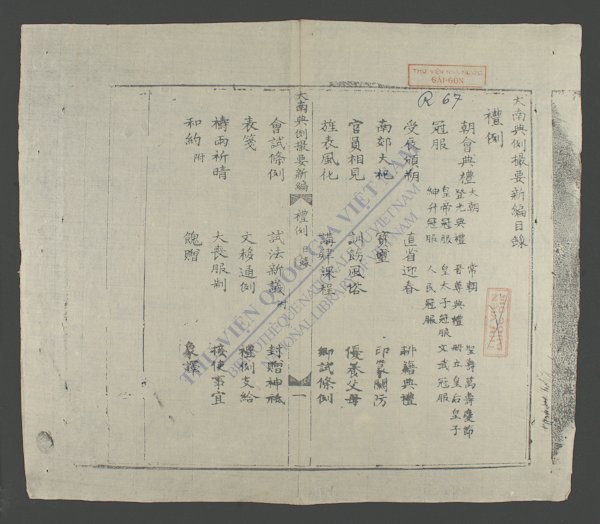 大南典例撮要新編目錄
禮例
朝會典禮 大朝 常朝 聖壽萬壽慶節
登光典禮 尊典禮 冊立皇后皇子
冠服 皇帝冠服 皇太子冠服 文武冠服
紳弁冠服 人民冠服
受辰頒朔 直省迎春 耕籍典禮
南郊大祀 印篆關防
官員相見 訓飭風俗 優養父母
旌表風化 講肄課程 鄉試條例
大南典例撮要新編 禮例 目錄 一
會試條例 試法新議 附 封贈神祇
表箋 文移通例 禮例支給
禱雨祈晴 大喪服制 接使事宜
和約 附 餽贈
R 67
THƯ VIỆN
SAIGON
THƯ VIỆN QUỐC GIA VIỆT NAM
BIBLIOTHÈQUE NATIONALE DU VIETNAM
NATIONAL LIBRARY OF VIETNAM